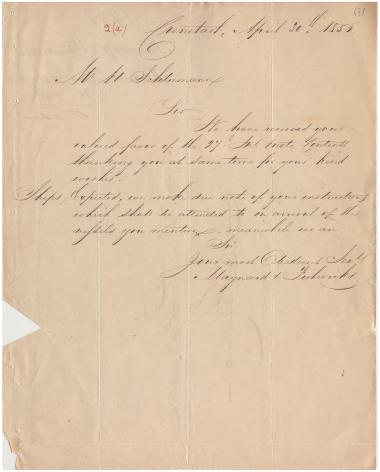 691
2(a)
Cronstadt, April 30th 1855
Mr H. Schliemann
Sir
We have received your
valued favor of the 27th Inst note Contents
thanking you at same time for your kind
wishes.
Ships Expected, we make due note of your instructions
which shall be attended to on arrival of the
vessels you mention, meanwhile we are
Sir
Your most Obedient Servts
Maynard &